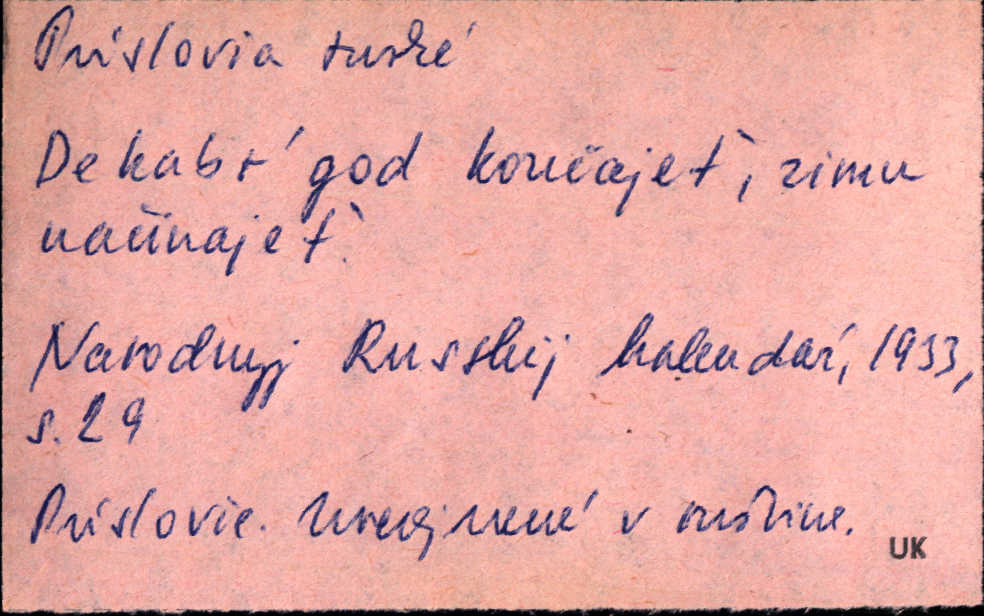 Príslovia ruské
Dekabr' god končajet', zimu
načinajet'.
Narodnyj Russkij kalendar', 1933,
s. 29
Príslovie. Uverejnené v ruštine.
UK